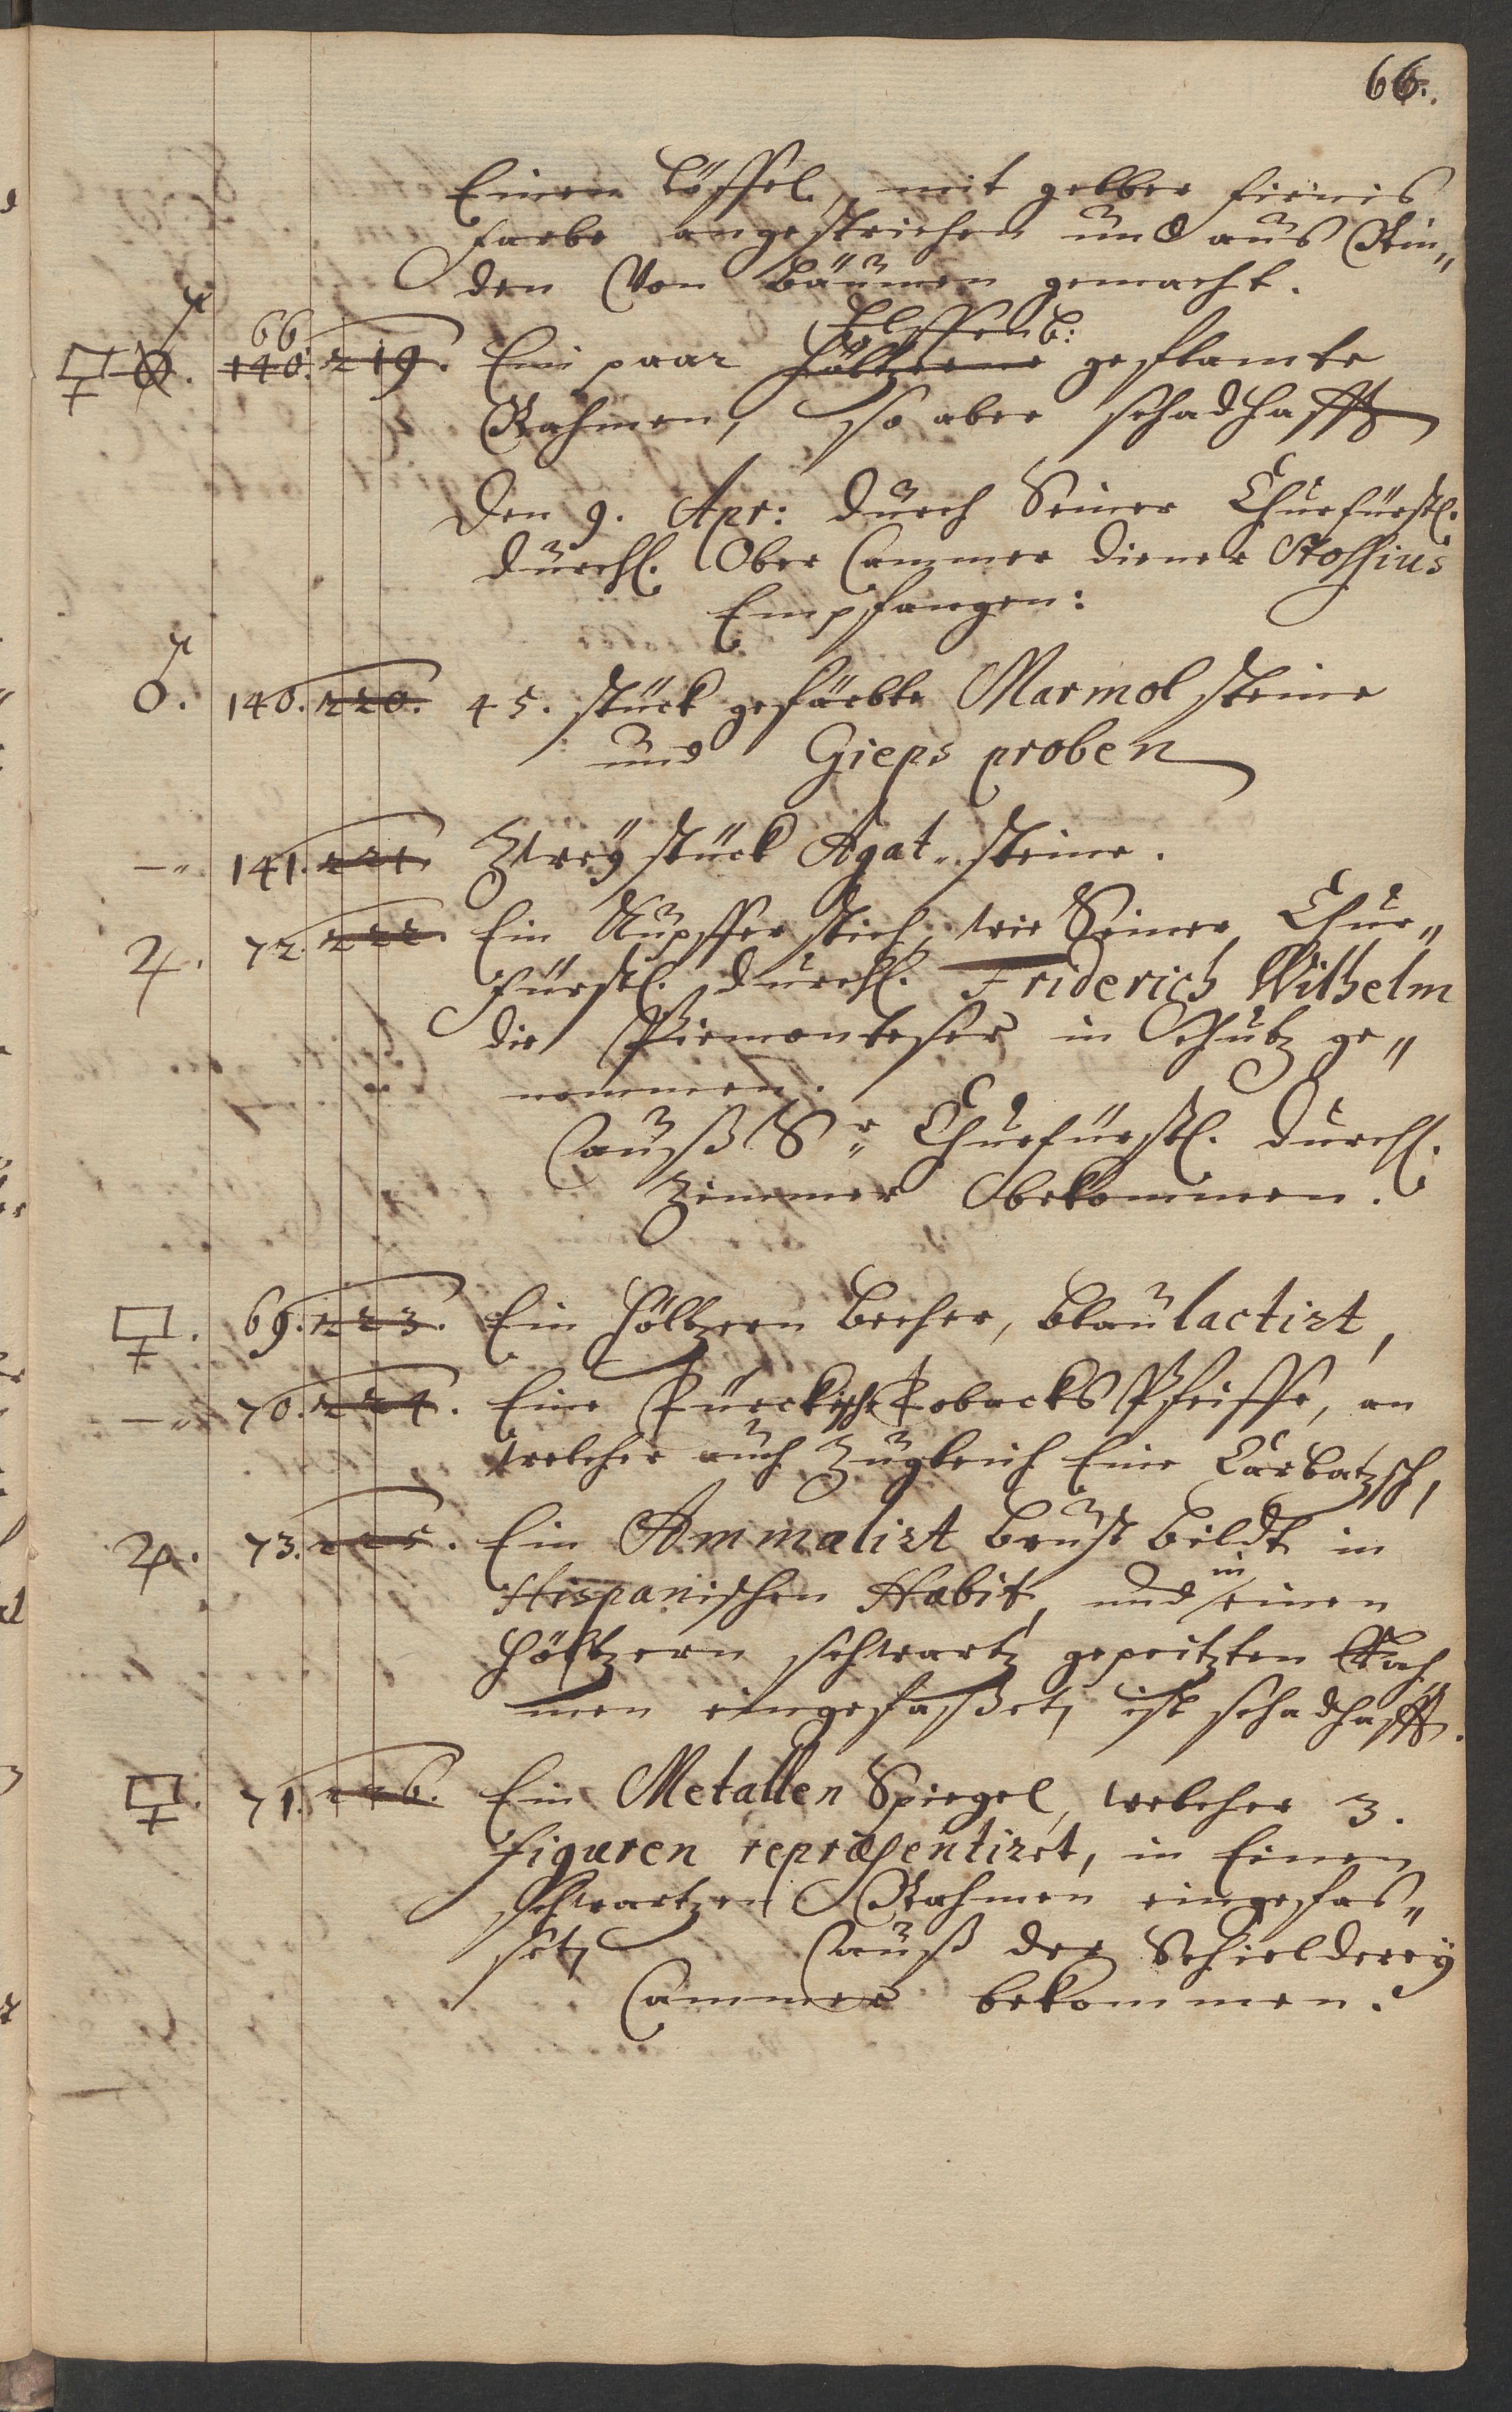 66.
Einen Löffel, mit gelber firnis
farbe angestrichen und aus Rin„
den Von bäumen gemacht.
66
♂. 140. 219. Ein paar höltzerne geflamte
Rahmen, so aber schadhafft
Den 9. Apr: durch Seiner Churfürstl.
Durchl. Ober Cammer diener Stossius
Empfangen:
♂. 140. 220. 45. stück gefärbte Marmol steine
und Gieps proben
—„ 141. 221. Zweÿ stück Agat„ steine.
♃. 72. 222. Ein Kupffer stich, wie Seiner Chur„
fürstl. Durchl. Friderich Wilhelm
die Piemonteser in Schutz ge„
nommen.
auß Sr. Churfürstl. Durchl.
Zimmer bekommen.
69. 223. Ein höltzern becher, blau lactirt,
—„ 70. 224. Eine Türckische Tobacks Pfeiffe, an
welcher auch zugleich Eine Carbatzsch,
♃. 73. 225. Ein Ammalirt brust bildt in
in
Hispanischen Habit, und einen
höltzern schwartz gepeitzten Rah„
men eingefaßet, ist schadhafft.
71. 226. Ein Metallen Spiegel, welcher 3.
figuren repræsentiret, in Einen
schwartzen Rahmen eingefas„
set, auß der Schielderey
Cammer bekommen.